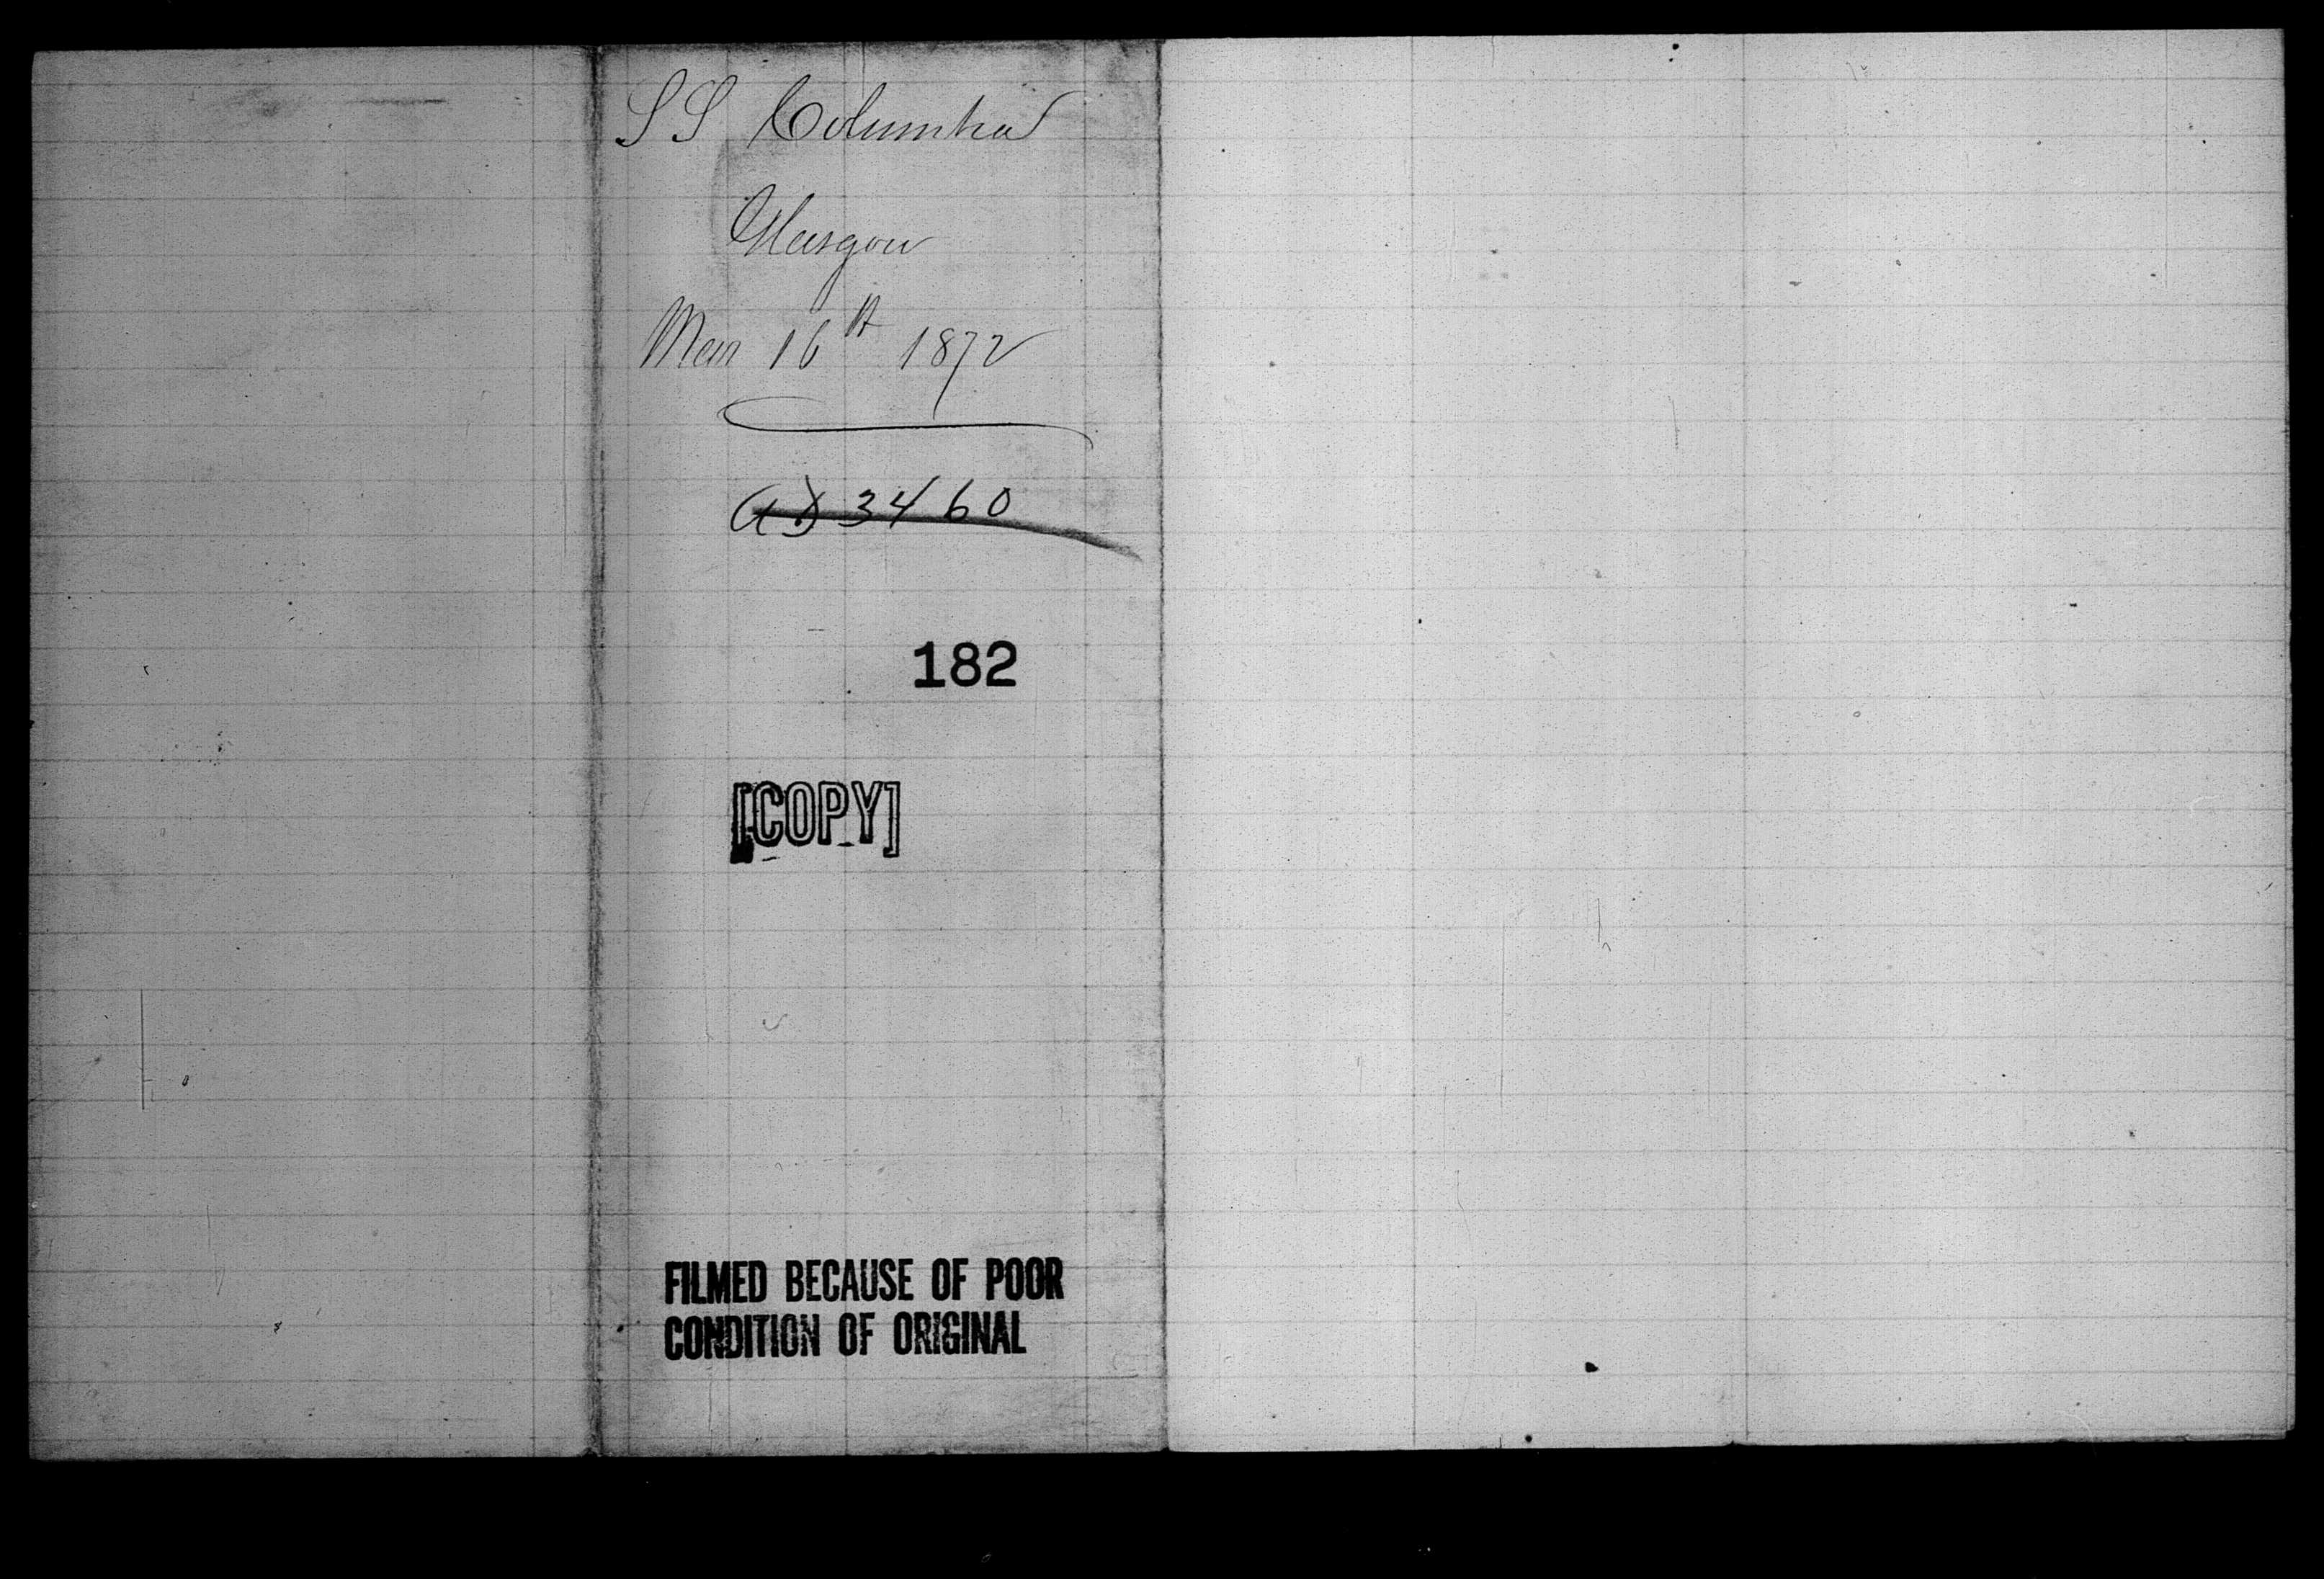 SS Columbia
Glasgow
Mar 16th 1872
3460
182
[COPY]
FILMED BECAUSE OF POOR
CONDITION OF ORIGINAL